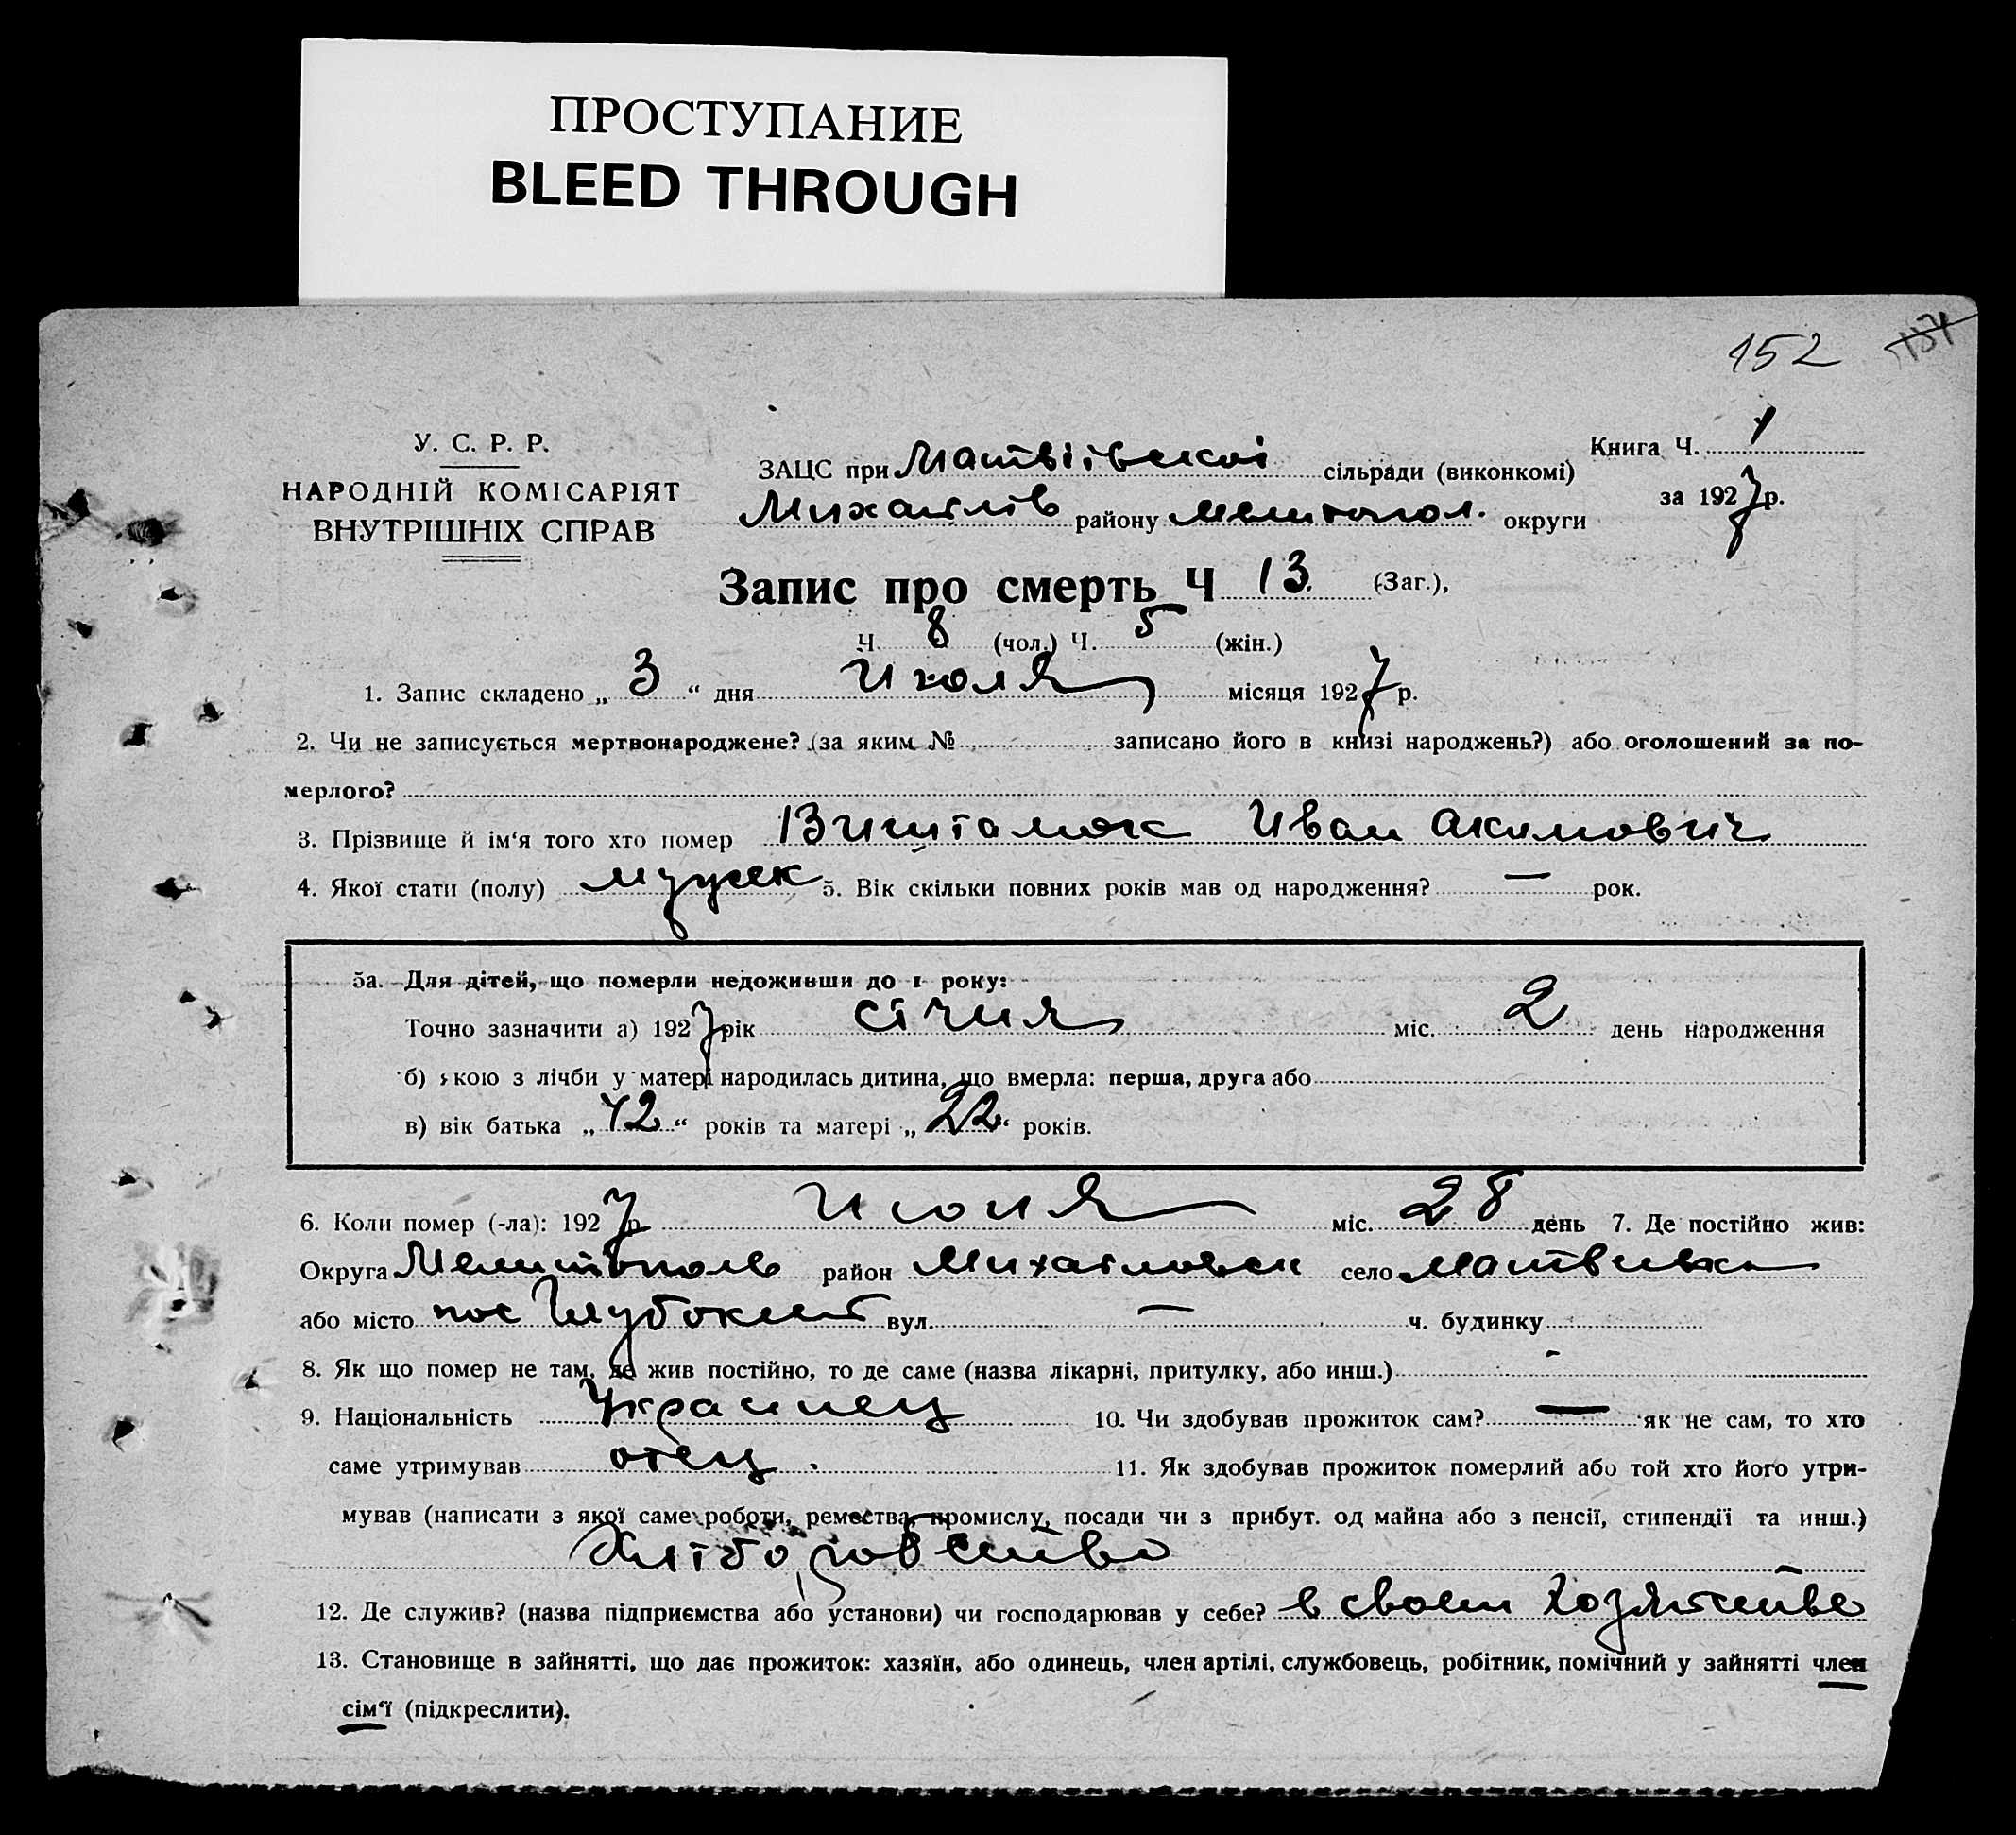 ПРОСТУПАНИЕ
BLEED THROUGH
152
У. С. Р. Р.
НАРОДНІЙ КОМІСАРІЯТ
ВНУТРІШНІХ СПРАВ
ЗАЦС при Матвіївскої сільради (виконкомі)
Михайлів району Мелитопол. округи
Книга Ч. 1
за 1927 р.
Запис про смерть Ч 13. (Заг.),
Ч. 8 (чол.) Ч. 5 (жін.)
1. Запис складено „ 3 “ дня Июля місяця 1927 р.
2. Чи не записується мертвонароджене? (за яким № записано його в книзі народжень?) або оголошений за по-
мерлого?
3. Прізвище й ім‘я того хто помер Иван Акимович
4. Якої стати (полу) мужек 5. Вік скільки повних років мав од народження? — рок.
5а. Для дітей, що померли недоживши до 1 року:
Точно зазначити а) 1927 рік січня міс. 2 день народження
б) якою з лічби у матері народилась дитина, що вмерла: перша, друга або
в) вік батька „ 42 “ років та матері „ 22 “ років.
6. Коли помер (-ла): 1927 р. Июня міс. 28 день 7. Де постійно жив:
Округа Мелитополь район Михайловск село Матвеивка
або місто пос вул. — ч. будинку
8. Як що помер не там, де жив постійно, то де саме (назва лікарні, притулку, або инш.) -
9. Національність Украинец 10. Чи здобував прожиток сам? — як не сам, то хто
саме утримував отец. 11. Як здобував прожиток померлий або той хто його утри-
мував (написати з якої саме роботи, ремества, промислу, посади чи з прибут. од майна або з пенсії, стипендії та инш.)
Хлібороб
12. Де служив? (назва підприємства або установи) чи господарював у себе? в своем хозяйстве
13. Становище в зайнятті, що дає прожиток: хазяїн, або одинець, член артілі, службовець, робітник, помічний у зайнятті член
сім‘ї (підкреслити).